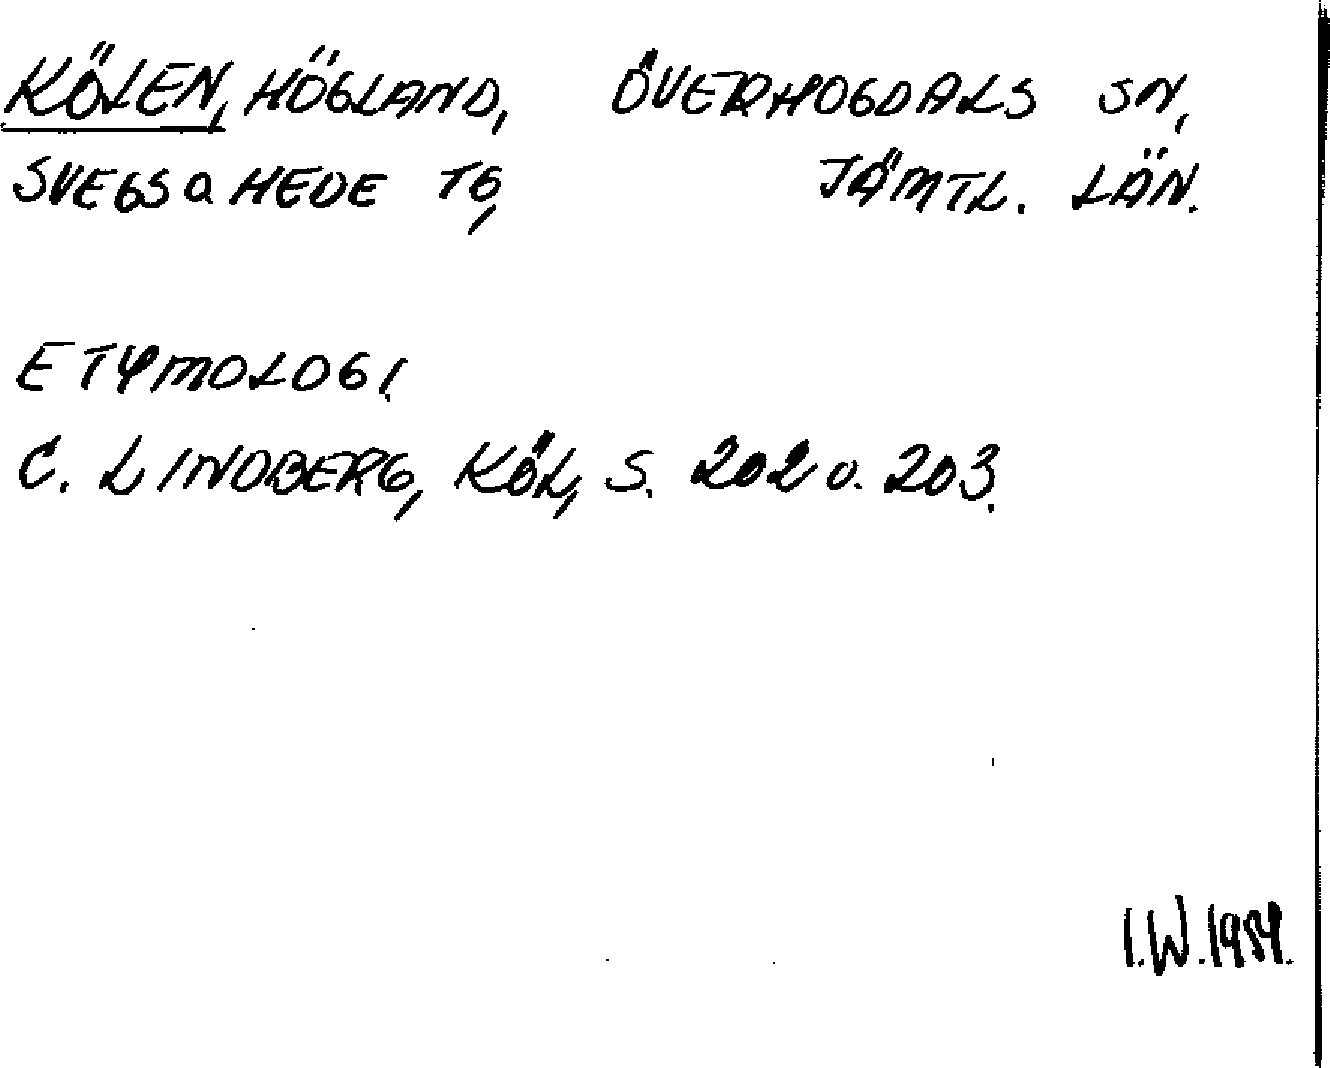 KÖLEN, HÖGLAND, ÖVERHOGDALS SN,
SVEGS O HEDE TG, JÄMTL. LÄN.
ETYMOLOGI.
C. LINDBERG, KÖL, S. 202 O. 203.
I.W. 1954.